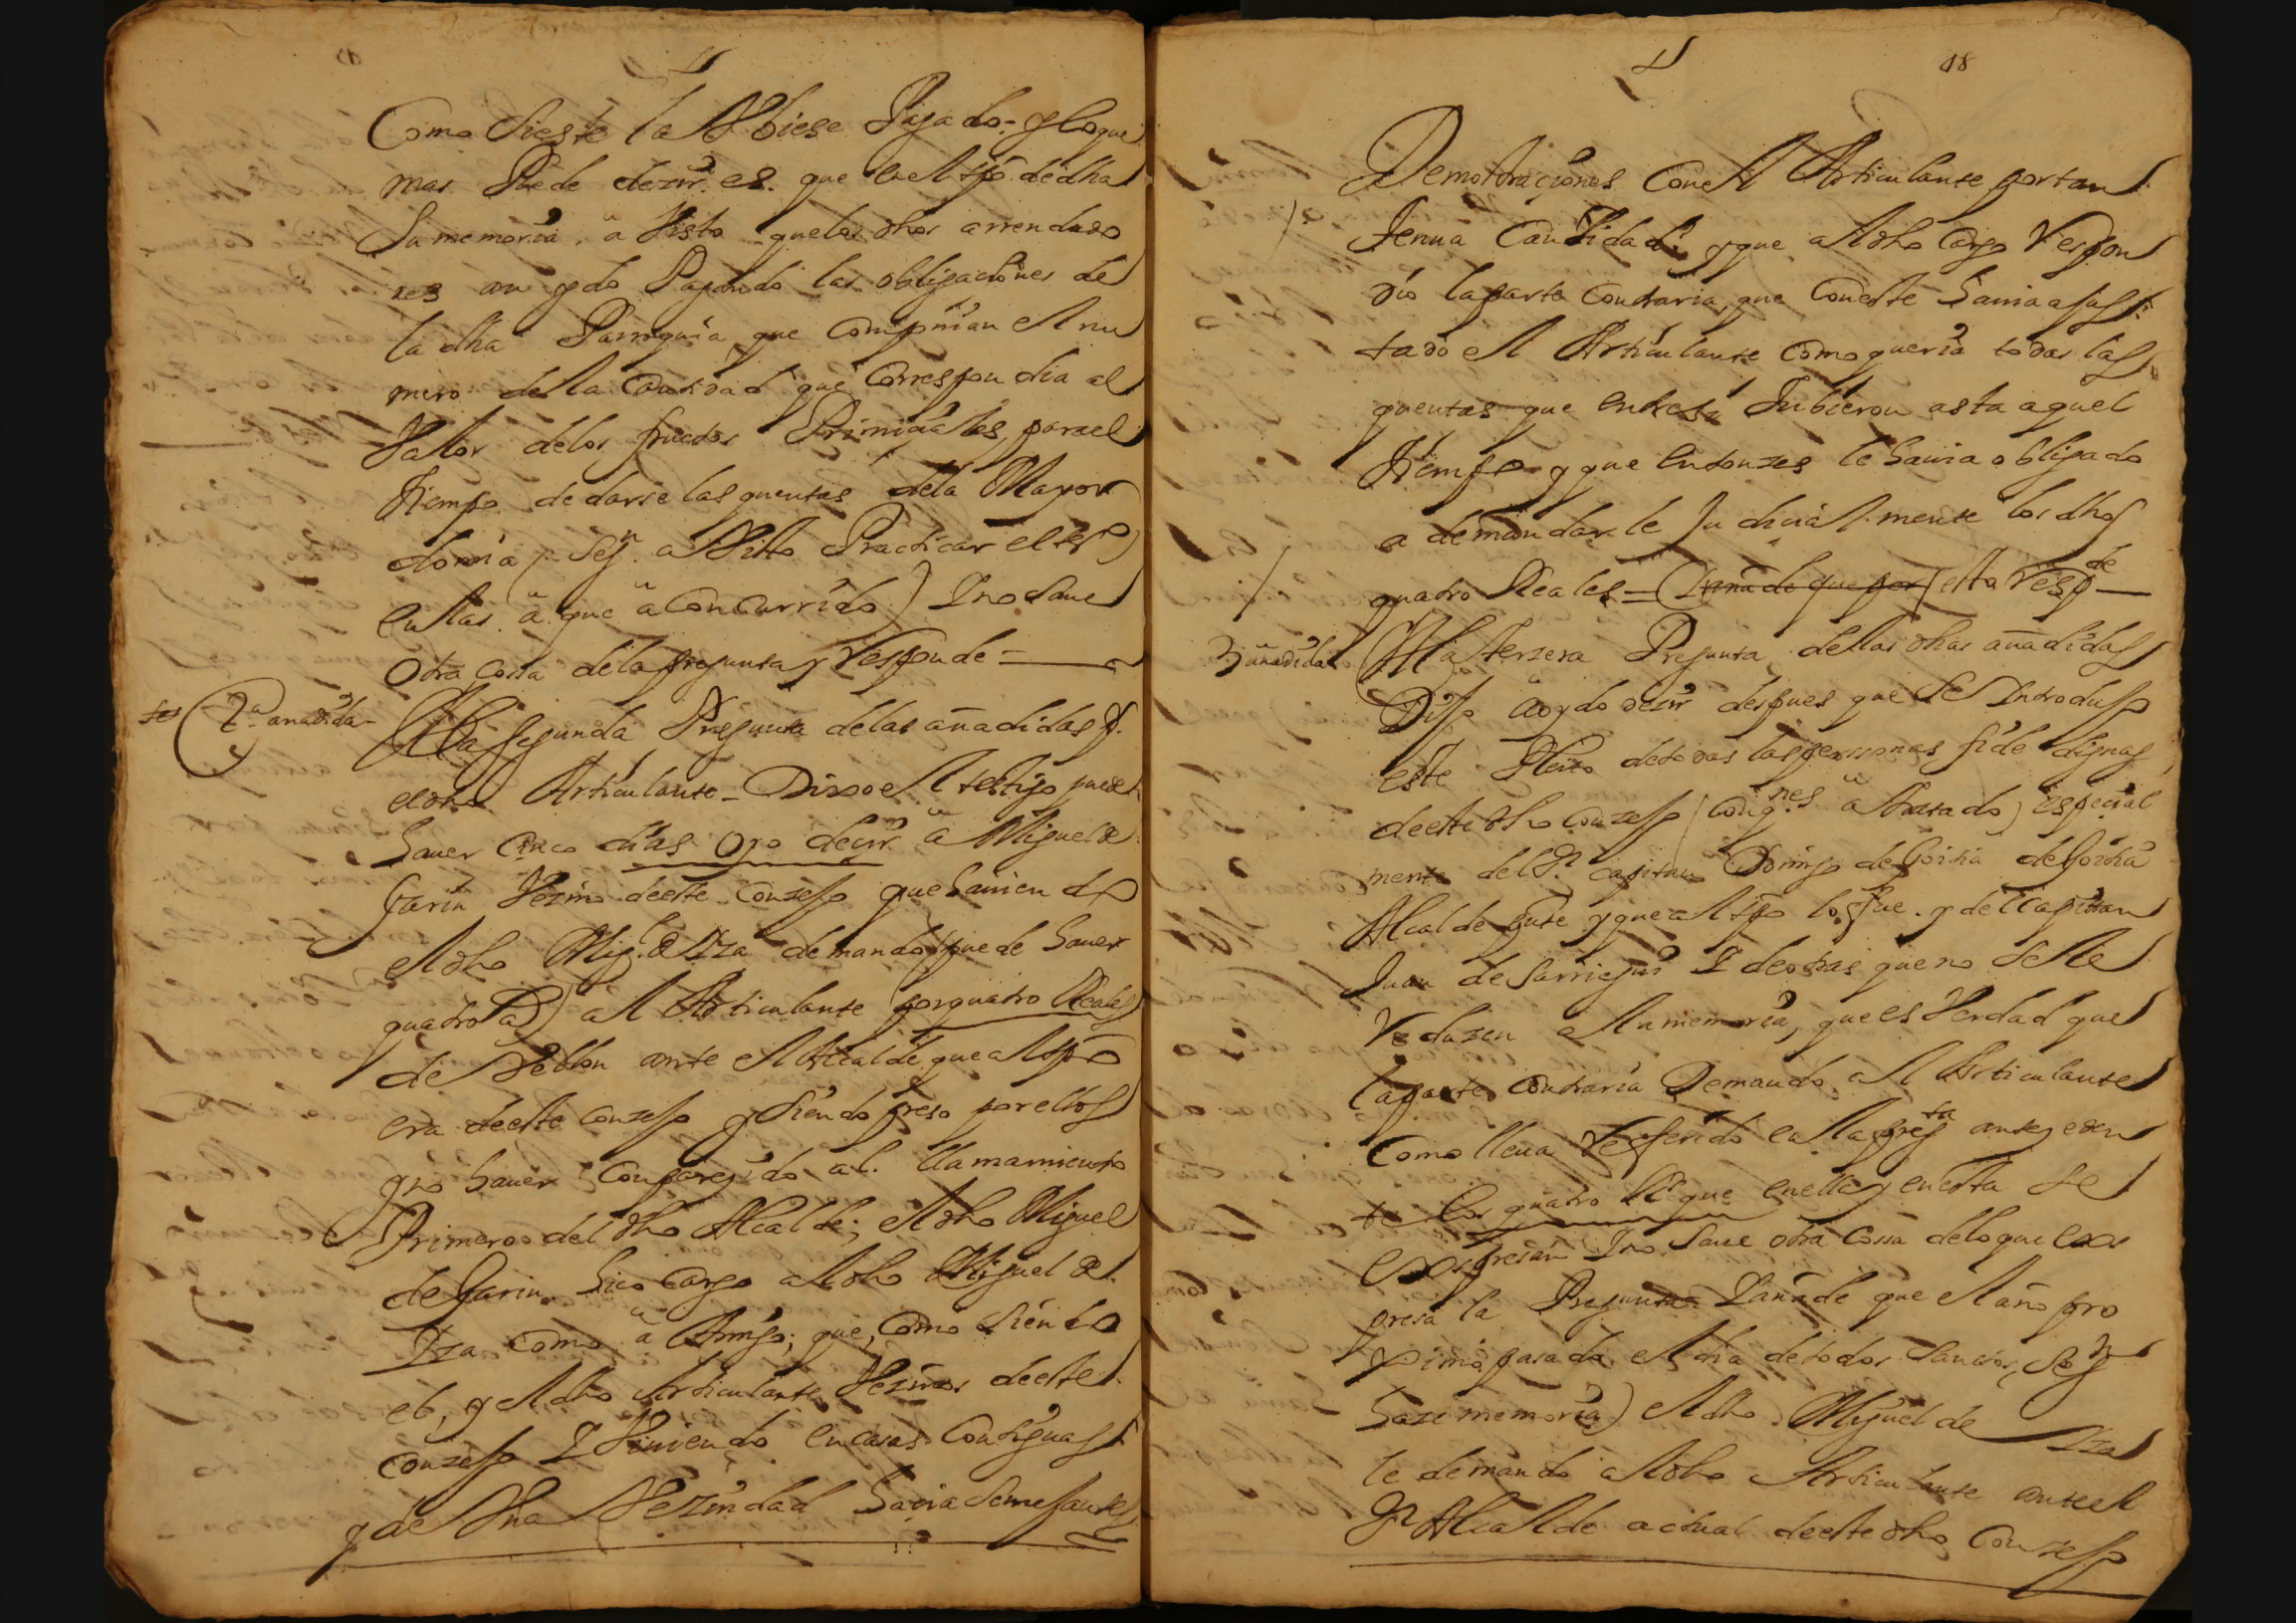 Como si este la Vbiese Pagado = y lo que
mas Puede dezir es. que en el tpo de dha
su memoria, a visto que los dhos arrendado
res an ydo Pagando las obligaciones de
la dha Parroquia, que componian el nu
mero de la cantidad que correspondia al
Valor de los fructos Primiciales, para el
tiempo de darse las quentas de la Mayor
domia (segn a visto Practicar el tgo
en las a que a concurrido) Y no saue
otra cossa de la pregunta y responde =
2ª añadida
A la segunda Pregunta de las añadidas p.
el dho Articulante = Dixo el testigo puede
hauer cinco dias oyo decir a Miguel de
Garin Vezino de este conzejo que hauiendo
el dho Migl de Yza demandado (puede hauer
quatro as) al Articulante por quatro Reales
de Vellon ante el Alcalde que al tpo
era de este conzejo y siendo preso por ellos
y no hauer comparezido al. llamamiento
Primero del dho Alcalde; el dho Miguel
de Garin hico cargo al dho Miguel de
Yza como a Amigo; que, como siendo
el, y el dho Articulante Vezinos de este
conzejo Y Viuiendo en casas contiguas
y de Vna Vezindad hacia semejantes
18
Demostraciones con el Articulante por tan
tenua Cantidad; y que al dho cargo Respon
dio la parte contraria, que con este hauia ajus
tado el Articulante como queria todas las
quentas que entre si tubieron asta aquel
tiempo y que entonzes le hauia obligado
a demandarle Judicialmente los dhos
quatro Reales = (Y añade que por) esto respde
3 añadida
A la terzera Pregunta de las dhas añadidas
Dijo a oydo dezir despues que se Introdujo
este Pleito de todas las personas fide dignas
de este dho conzejo (con qnes a tratado) especial
mente del Sr. capitan Domingo de Goitia de Goitia
Alcalde que al tpo lo fue. y del capitan
Juan de Sarriegui Y de otras que no se le
Reduzen a la memoria, que es Verdad que
la parte contraria Demando al Articulante
Como lleua Referido en la pregta antezeden
te Los quatro Rs que en ella y en esta se
expresan Y no saue otra cossa de lo que ex
presa la Pregunta = Y añade que el año pro
ximo pasado el dia de todos sanctos, (segn
haze memoria) el dho Miguel de Yza
le demando al dho Articulante ante el
Sr Alcalde actual de este dho conzejo